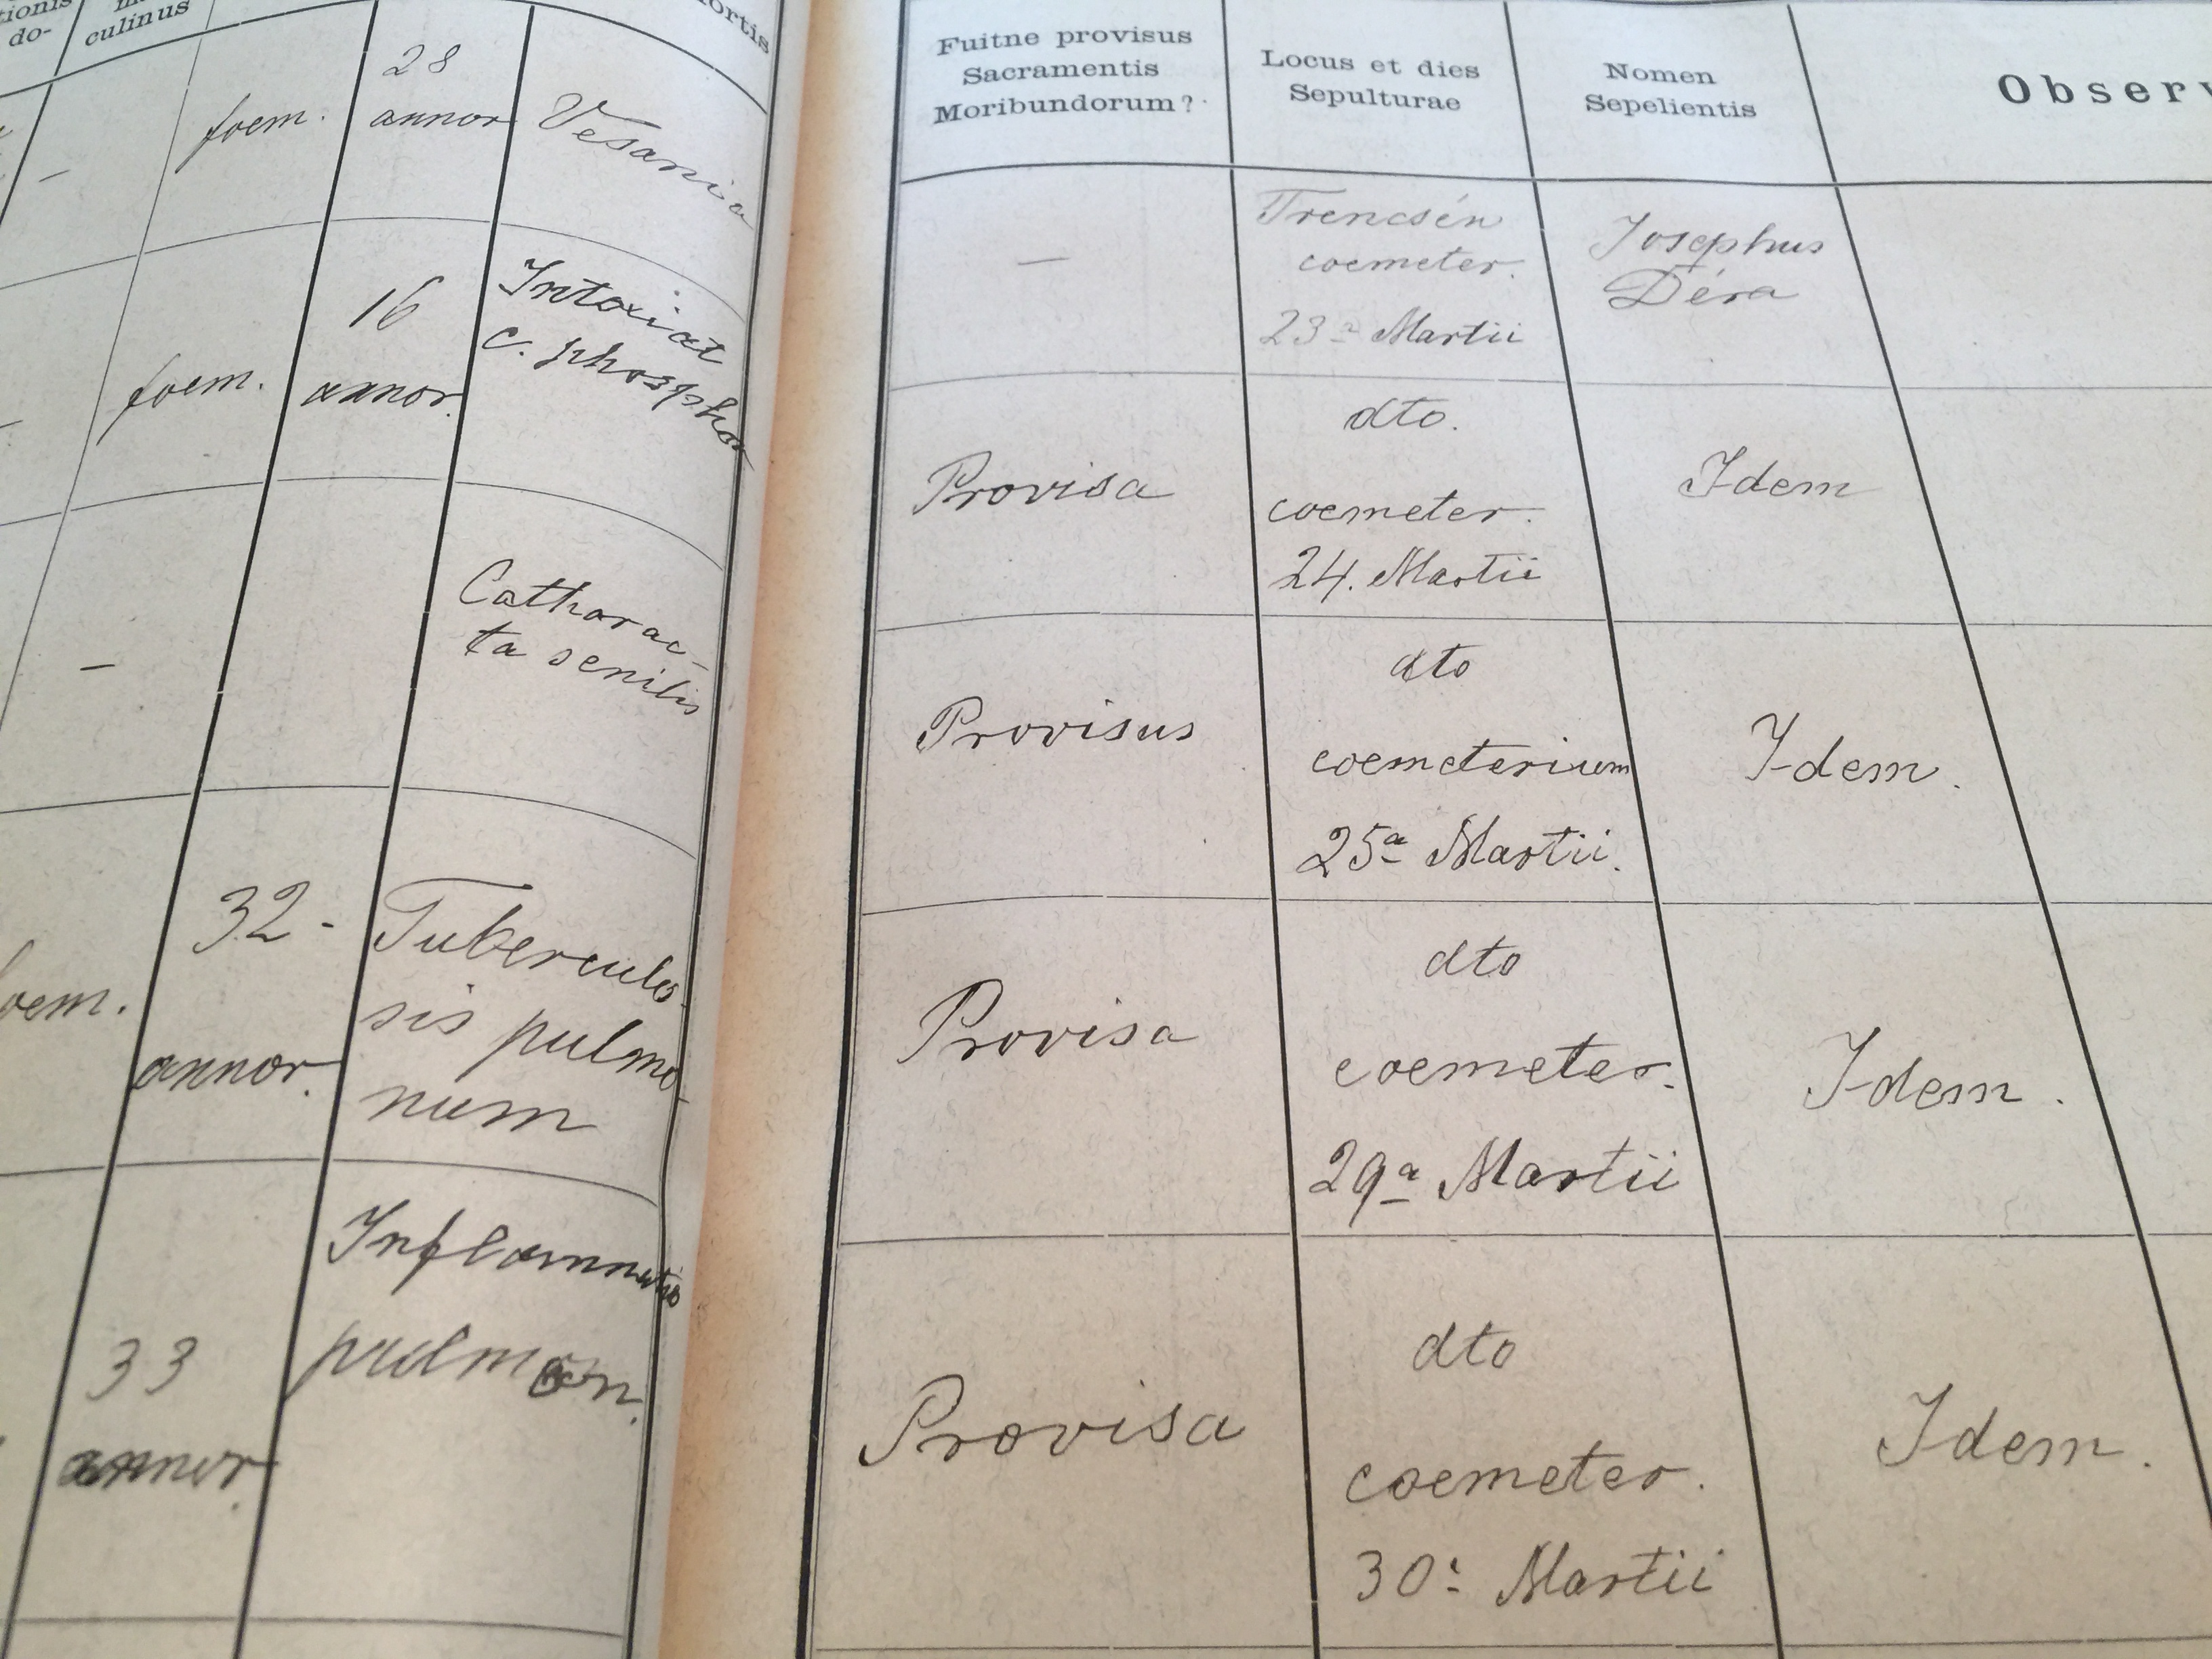 do-
culinus
ortis
foem.
28
annor
Vesania
foem.
16
annor.
Intoxicat
c. phosphor
Catharac-
ta senilis
32-
annor.
Tuberculo-
sis pulmo-
num
33
annor.
Inflammatio
pulmon.
Fuitne provisus
Sacramentis
Moribundorum?
Locus et dies
Sepulturae
Nomen
Sepelientis
Observ
—
Trencsén
coemeter.
23a Martii
Josephus
Déra
Provisa
dto.
coemeter.
24. Martii
Idem
Provisus
dto
coemeterium
25a Martii.
Idem.
Provisa
dto
coemeter.
29a Martii
Idem.
Provisa
dto
coemeter.
30a Martii
Idem.